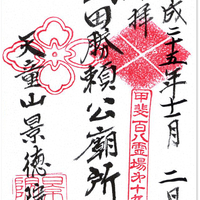 成二十五年十一月 二日
拝
田勝頼公廟所
甲斐百八霊場第十九
天童山景徳院